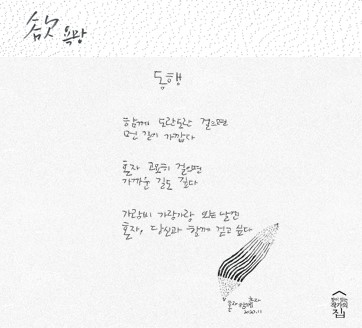 欲 욕망
동행
함께 도란도란 걸으면
먼 길이 가깝다
혼자 고요히 걸으면
가까운 길도 깊다
가랑비 가랑가랑 오는 날엔
혼자, 당신과 함께 걷고 싶다
집